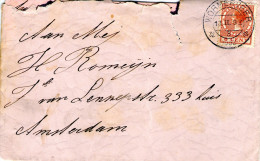 Aan Mej
H Romeijn
J van Lennepstr. 333 huis
Amsterdam